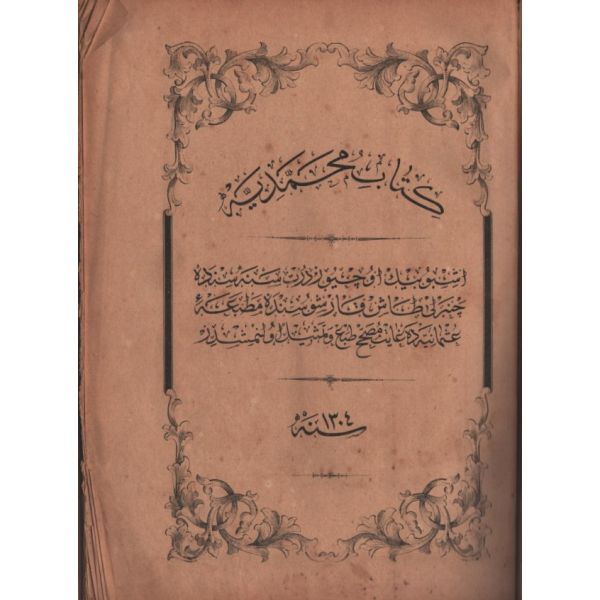 كتاب محمديه
اشبو بيك اوچيوز درت سنه سنده
چنبرلى طاش قارشوسنده مطبعهٔ
عثمانيه ده غايت مصحح طبع و تمثيل اولنمشدر
سنه ١٣٠٤